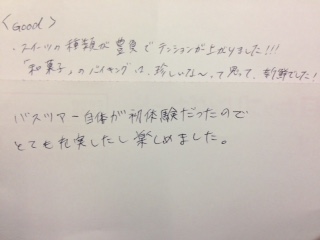 〈Good〉
・スイーツの種類が豊冨でテンションが上がりました!!!
「和菓子」のバイキングは、珍しいな〜って思って、新鮮でした!
バスツアー自体が初体験だったので
とても充実したし楽しめました。